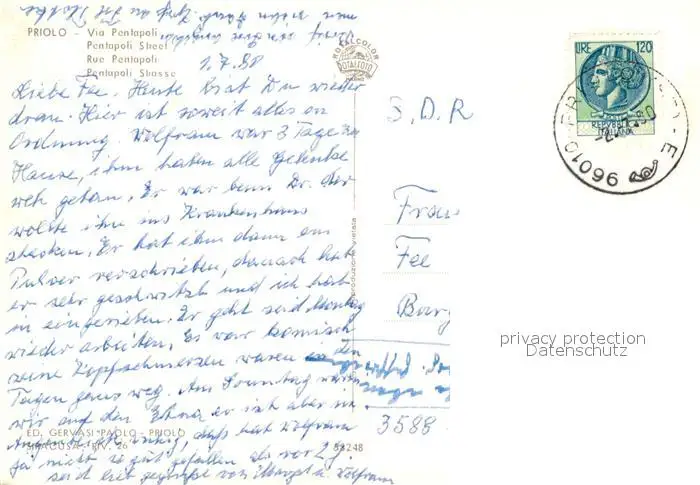 PRIOLO - Via Pentapoli
Pentapoli Street
Rue Pentapoli
Pentapoli Strasse
ROTALCOLOR
ROTALFOTO
1.7.80
Liebe Fee. Heute bist Du wieder
dran. Hier ist soweit alles in
Ordnung. Wolfram war 3 Tage zu
Hause, ihm haben alle Gelenke
weh getan. Er war beim Dr. der
wollte ihn ins Krankenhaus
stecken. Er hat ihm dann ein
Pulver verschrieben, danach hat
er sehr geschwitzt und ich hab
in eingerieben. Er geht seid Montag
wieder arbeiten. Es war komisch
seine Kopfschmerzen waren in den
Tagen ganz weg. Am Sonntag waren
wir auf den Ethna er ist aber im
Augenblick ruhig, daß hat Wolfram
ja nicht so gut gefallen als vor 2 J.
seid lieb gegrüßt von Margot u. Wolfram
ED. GERVASI PAOLO - PRIOLO
SIRACUSA
38248
riproduzione vietata
LIRE 120
REPUBBLICA
ITALIANA
96010
D.D.R
Frau
Fee
3588
privacy protection
Datenschutz